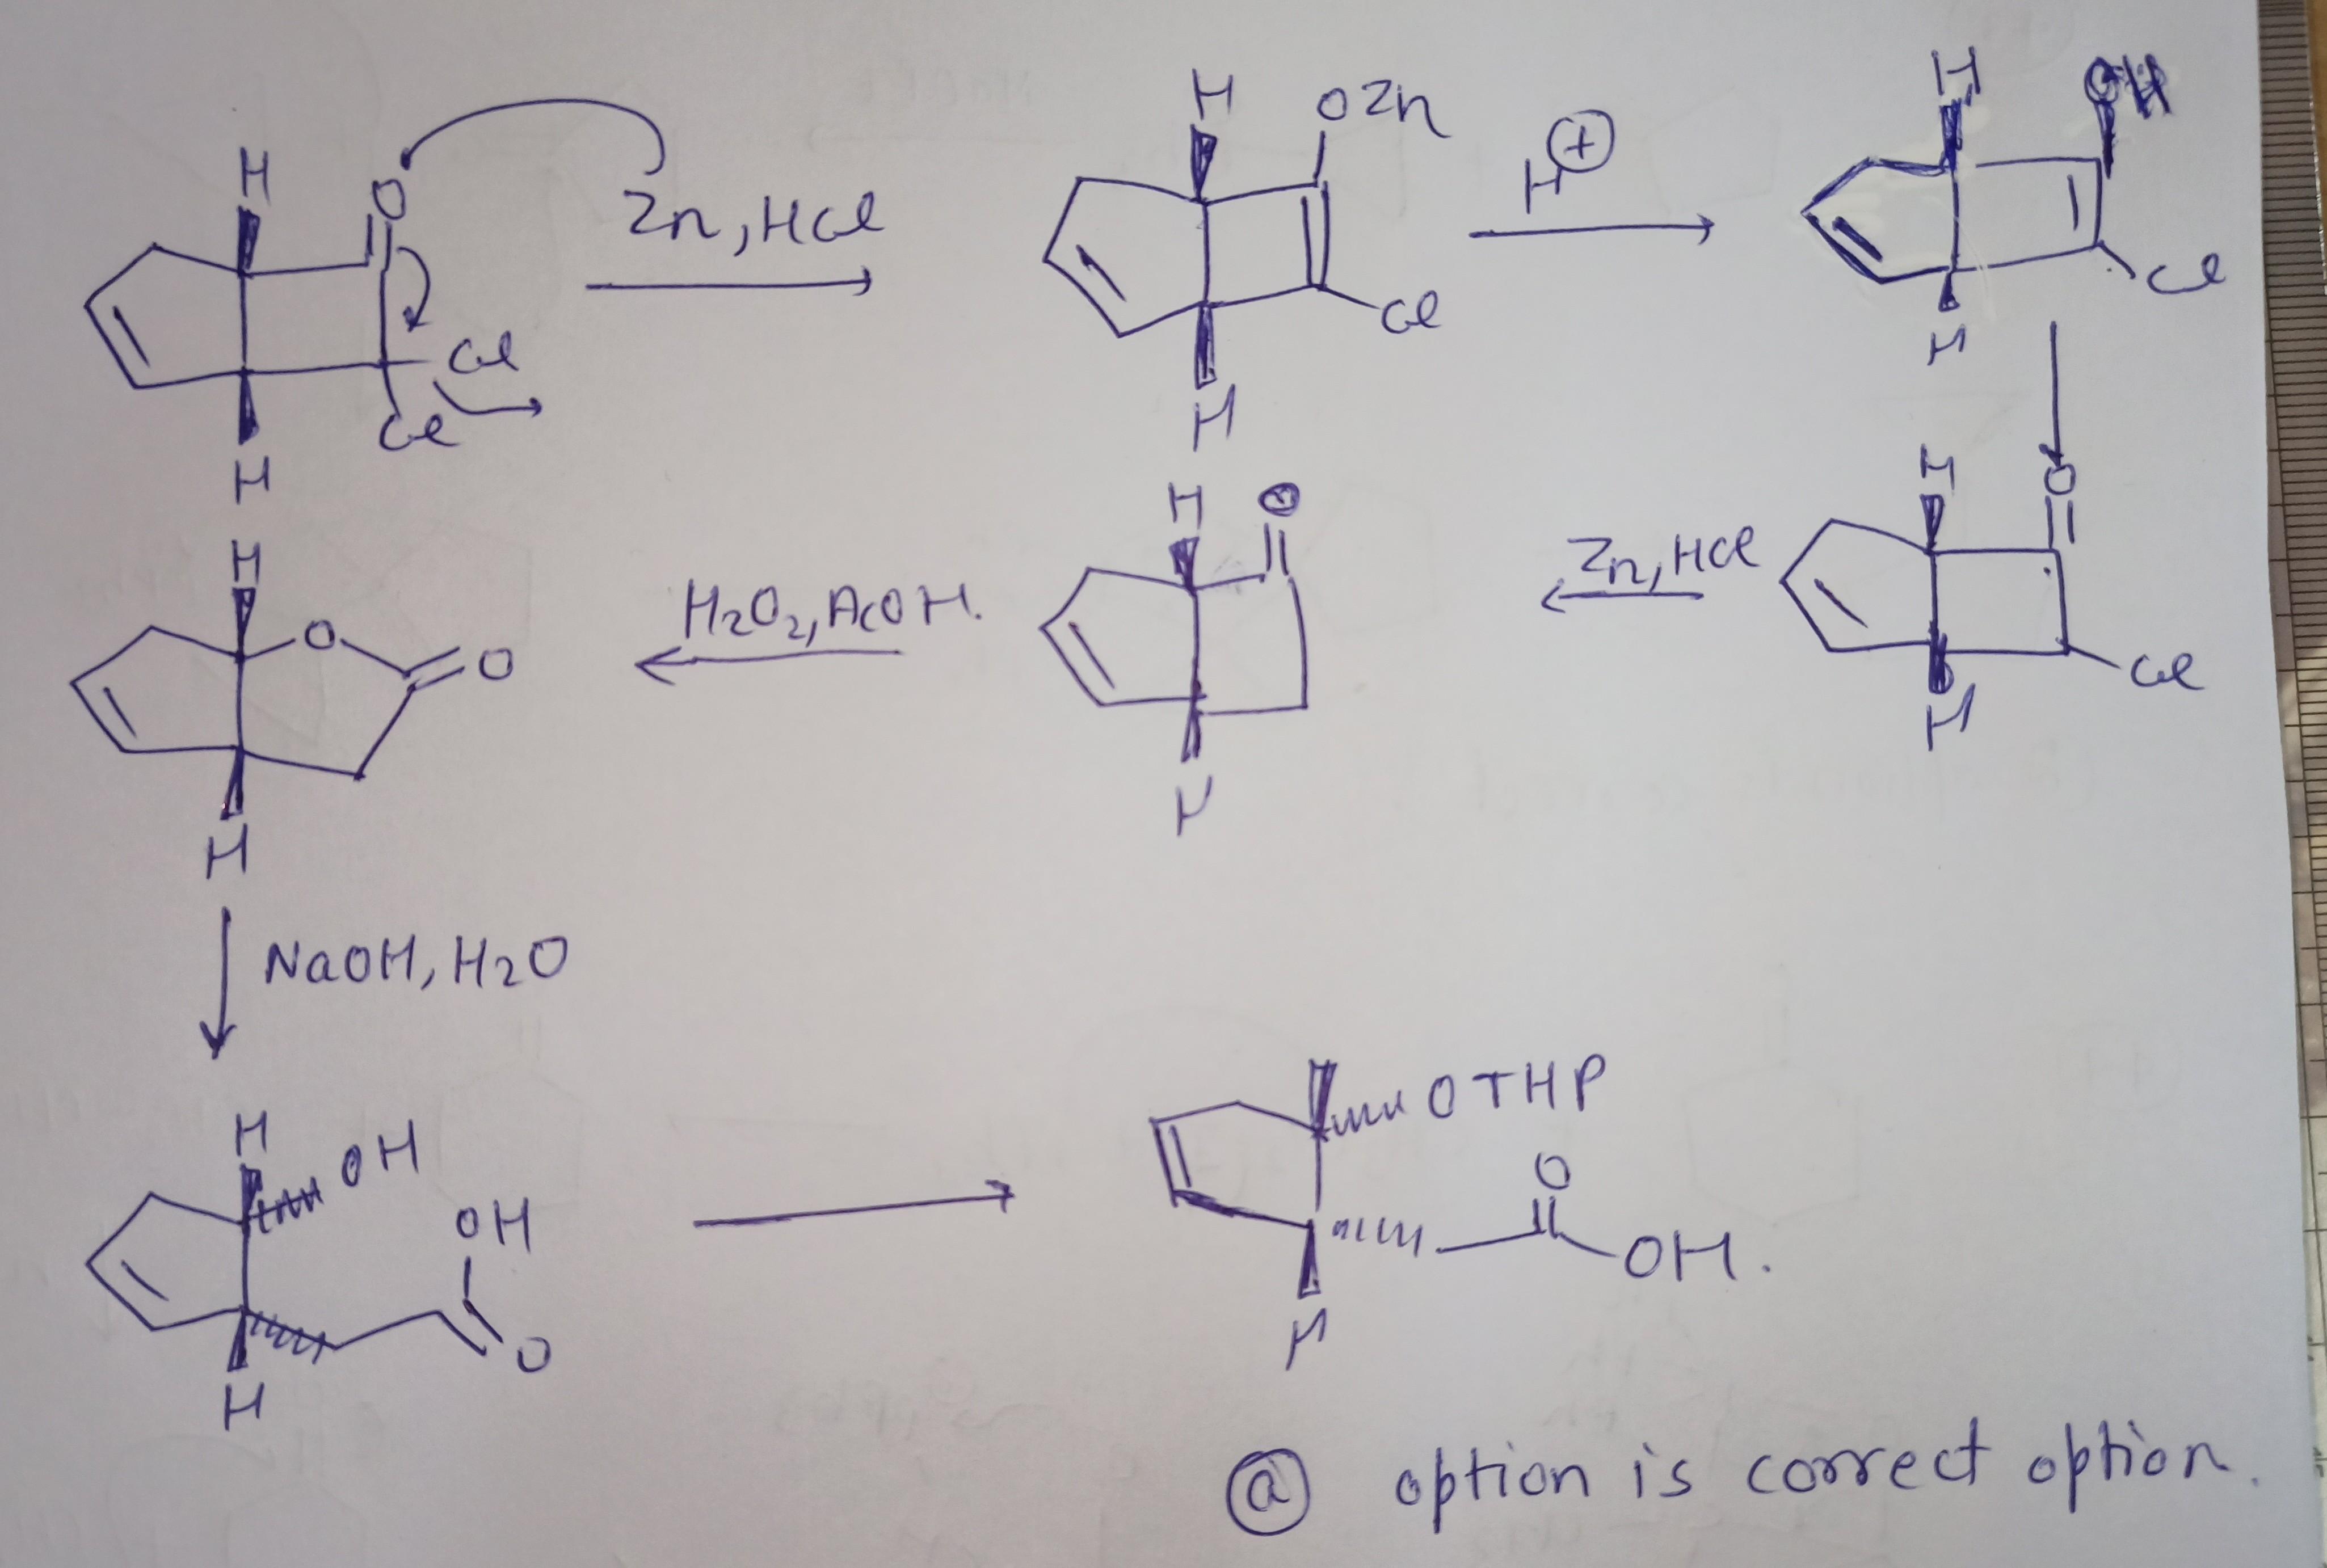 H
O
Zn, HCl
Cl
Cl
H
H
OZn
Cl
H
H⊕
H
OH
Cl
H
H
O
Cl
H
Zn, HCl
H
O
H
H₂O₂, AcOH.
H
O
O
H
NaOH, H₂O
H
OH
OH
O
H
OTHP
O
OH.
H
ⓐ option is correct option.